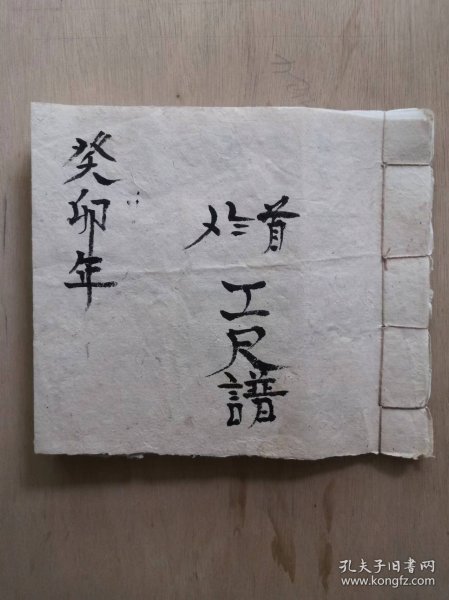 首
工尺譜
癸卯年
孔夫子旧书网
www.kongfz.com